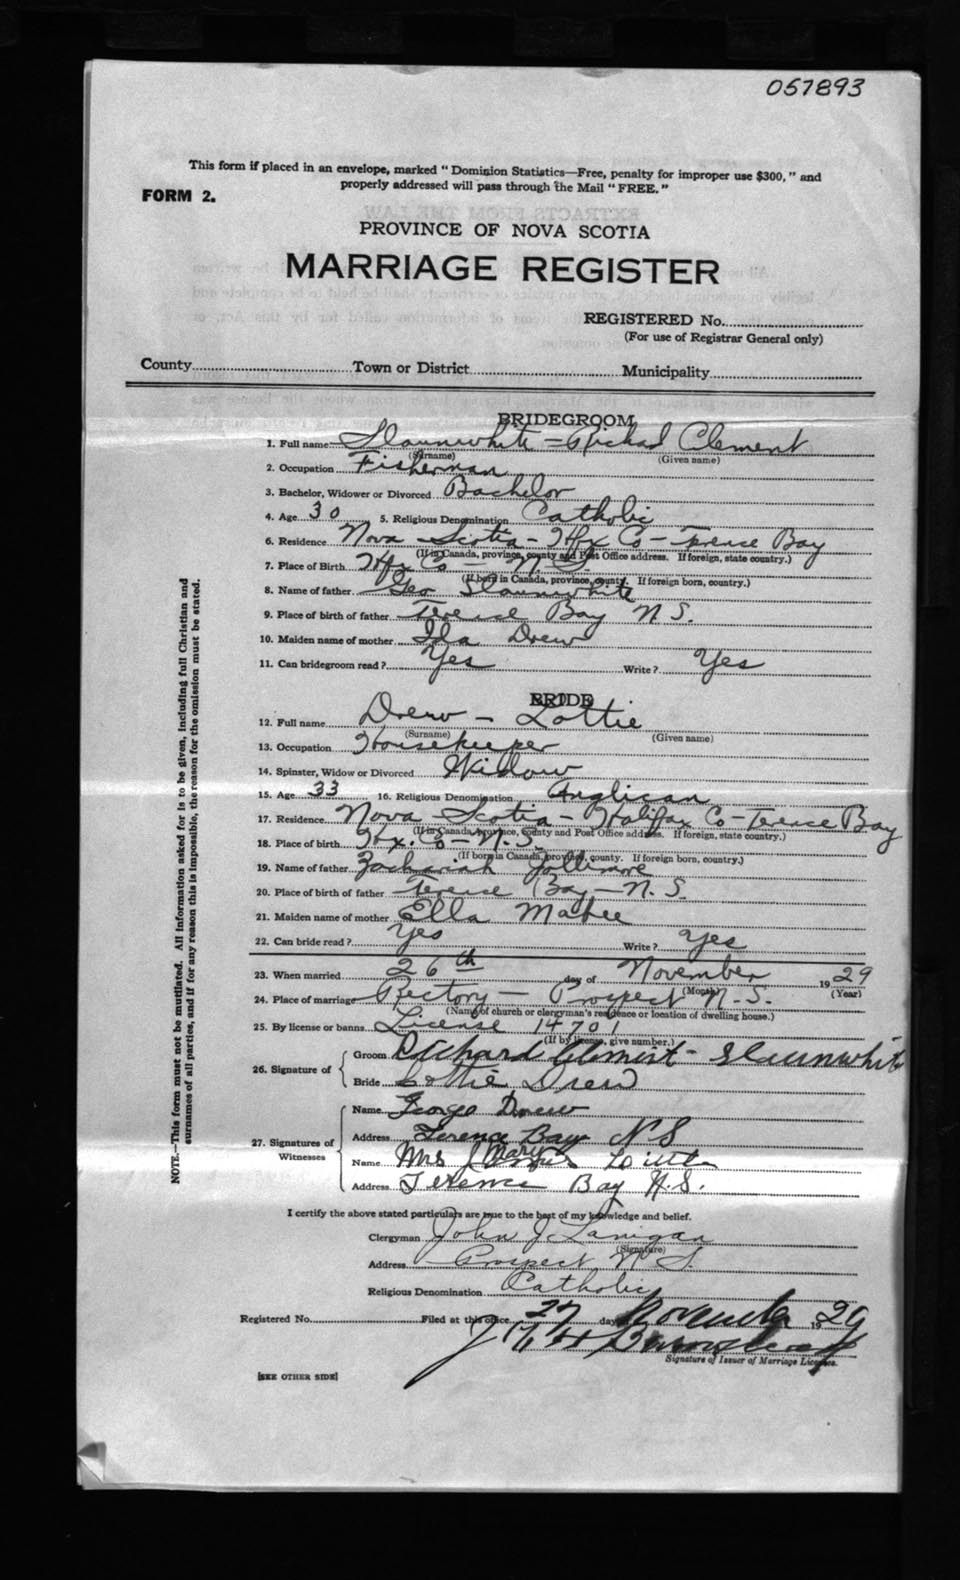 057893
This form if placed in an envelope, marked "Dominion Statistics—Free, penalty for improper use $300," and
properly addressed will pass through the Mail "FREE."
FORM 2.
PROVINCE OF NOVA SCOTIA
MARRIAGE REGISTER
REGISTERED No.
(For use of Registrar General only)
County Town or District Municipality
BRIDEGROOM
1. Full name Slaunwhite = Richad Clement
(Surname) (Given name)
2. Occupation Fisherman
3. Bachelor, Widower or Divorced Bachelor
4. Age 30 5. Religious Denomination Catholic
6. Residence Nova Scotia - Hfx Co - Terence Bay
(If in Canada, province, county and Post Office address. If foreign, state country.)
7. Place of Birth Hfx Co - N.S.
(If born in Canada, province, county. If foreign born, country.)
8. Name of father Geo Slaunwhite
9. Place of birth of father Terence Bay N.S.
10. Maiden name of mother Ida Drew
11. Can bridegroom read? Yes Write? Yes
BRIDE
12. Full name Drew - Lottie
(Surname) (Given name)
13. Occupation Housekeeper
14. Spinster, Widow or Divorced Widow
15. Age 33 16. Religious Denomination Anglican
17. Residence Nova Scotia - Halifax Co - Terence Bay
(If in Canada, province, county and Post Office address. If foreign, state country.)
18. Place of birth Hx. Co - N.S.
(If born in Canada, province, county. If foreign born, country.)
19. Name of father Zachariah Jollimore
20. Place of birth of father Terence Bay - N.S.
21. Maiden name of mother Ella Mabee
22. Can bride read? Yes Write? Yes
23. When married 26th day of November 1929
(Month) (Year)
24. Place of marriage Rectory - Prospect N.S.
(Name of church or clergyman's residence or location of dwelling house.)
25. By license or banns License 14701
(If by license, give number.)
26. Signature of Groom Richard Clement - Slaunwhite
Bride Lottie Drew
27. Signatures of Witnesses
Name George Drew
Address Terence Bay N S
Name Mrs Mary
Address Terence Bay N.S.
I certify the above stated particulars are true to the best of my knowledge and belief.
Clergyman John J Lanigan
(Signature)
Address Prospect N.S.
Religious Denomination Catholic
Registered No. Filed at this office 27 day November 1929
Signature of Issuer of Marriage Licenses.
[SEE OTHER SIDE]
NOTE.—This form must not be mutilated. All information asked for is to be given, including full Christian and
surnames of all parties, and if for any reason this is impossible, the reason for the omission must be stated.